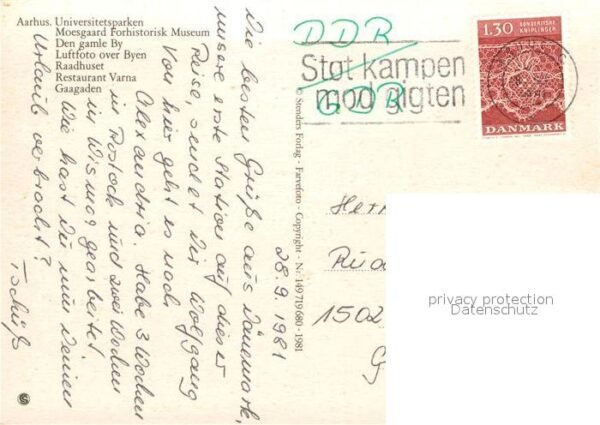 Aarhus. Universitetsparken
Moesgaard Forhistorisk Museum
Den gamle By
Luftfoto over Byen
Raadhuset
Restaurant Varna
Gaagaden
28.9.1981
Die besten Grüße aus Dänemark,
unsere erste Station auf dieser
Reise, sendet Dir Wolfgang
Von hier geht es nach
Alexandria. Habe 3 Wochen
in Rostock und zwei Wochen
in Wismar gearbeitet.
Wie hast Du nun Deinen
Urlaub verbracht?
Tschüß
Stenders Forlag · Farvefoto · Copyright · Nr. 149 719 680 · 1981
DDR
Støt kampen
mod gigten
GDR
1.30 SØNDERJYSKE
KNIPLINGER
DANMARK
Herr
1502
privacy protection
Datenschutz